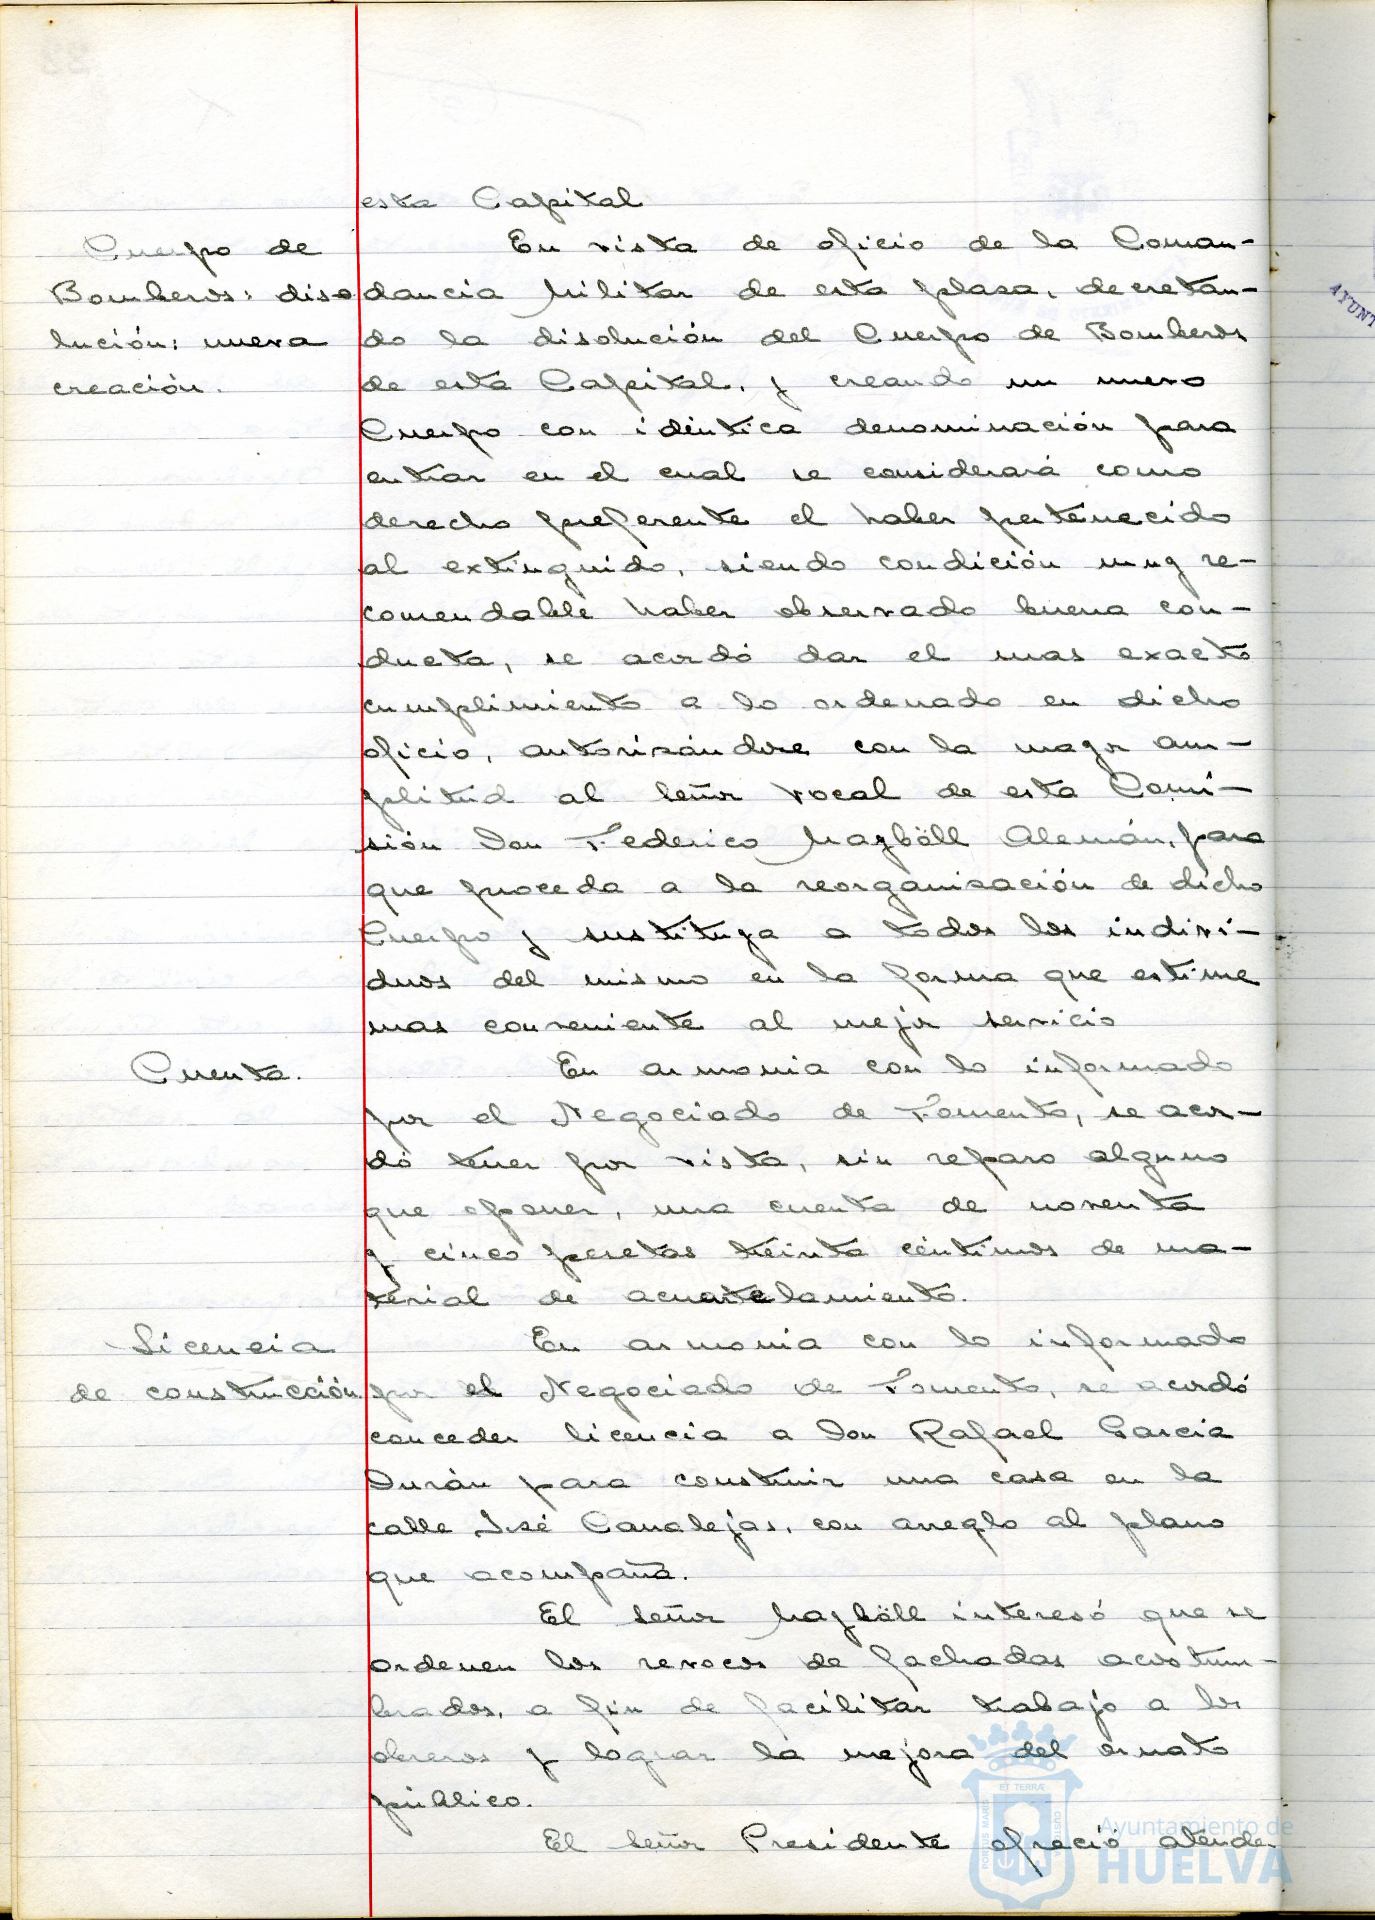 esta Capital
Cuerpo de
Bomberos: diso
lución: nueva
creación.
En vista de oficio de la Coman-
dancia Militar de esta plaza, decretan-
do la disolución del Cuerpo de Bomberos
de esta Capital, y creando un nuevo
Cuerpo con idéntica denominación para
entrar en el cual se considerará como
derecho preferente el haber pertenecido
al extinguido, siendo condición muy re-
comendable haber observado buena con-
ducta, se acordó dar el mas exacto
cumplimiento a lo ordenado en dicho
oficio, autorizándose con la mayor am-
plitud al señor vocal de esta Comi-
sión Don Federico Mayböll Alemán, para
que proceda a la reorganización de dicho
Cuerpo y sustituya a todos los indivi-
duos del mismo en la forma que estime
mas conveniente al mejor servicio
Cuenta.
En armonia con lo informado
por el Negociado de Fomento, se acor-
dó tener por vista, sin reparo alguno
que oponer, una cuenta de noventa
y cinco pesetas treinta céntimos de ma-
terial de acuartelamiento.
Licencia
de construcción
En armonia con lo informado
por el Negociado de Fomento, se acordó
conceder licencia a Don Rafael Garcia
Durán para construir una casa en la
calle José Canalejas, con arreglo al plano
que acompaña.
El señor Mayböll interesó que se
ordenen los revocos de fachadas acostum-
brados, a fin de facilitar trabajo a los
obreros y lograr la mejora del ornato
público.
El señor Presidente ofreció atender
AYUNT
PORTUS MARIS ET TERRÆ CUSTODIA
Ayuntamiento de
HUELVA